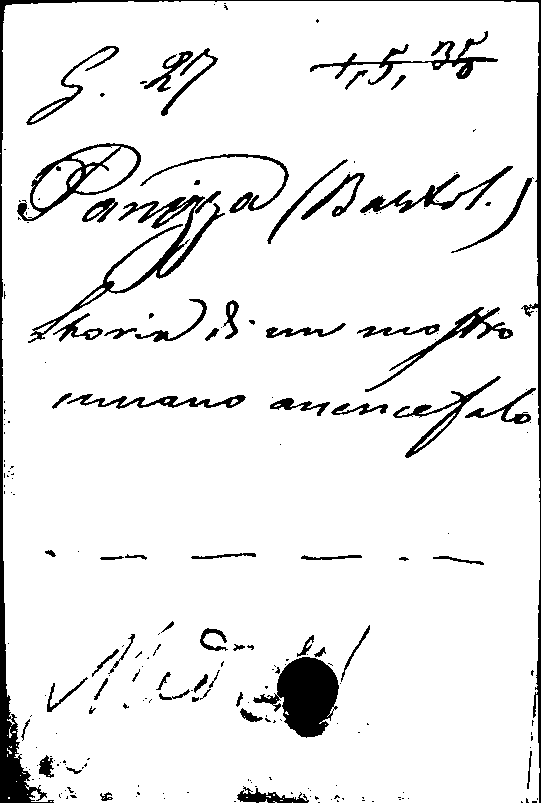 G. 27 1,5,35
Panizza (Bartol.)
Storia di un mostro
umano anencefalo
Med